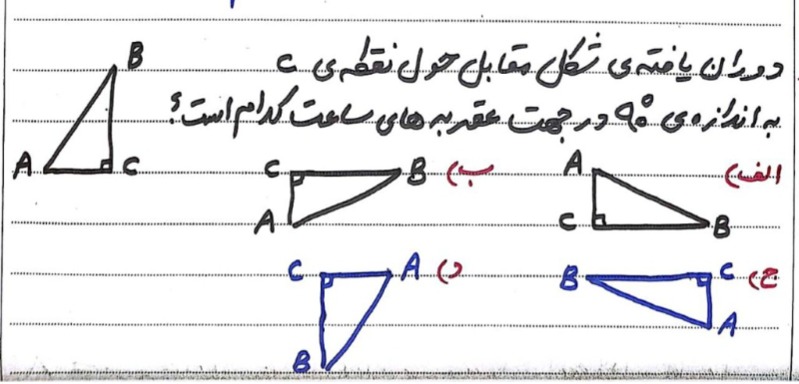 دوران یافته‌ی شکل مقابل حول نقطه‌ی C
به اندازه‌ی ۹۰° در جهت عقربه های ساعت کدام است؟
B
A
C
الف)
A
C
B
ب)
C
B
A
ج)
B
C
A
د)
C
A
B